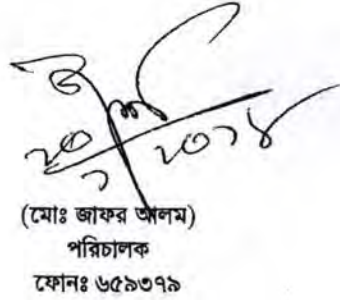 ২০
১ ২০১৪
(মোঃ জাফর আলম)
পরিচালক
ফোনঃ ৬৫৯৩৭৯